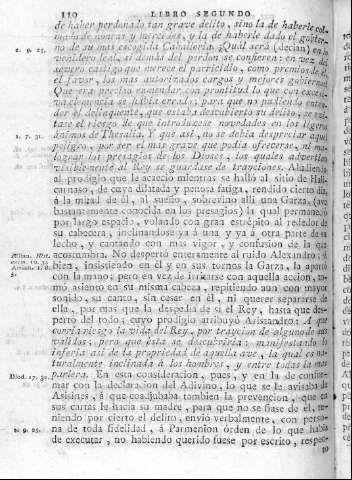 110 LIBRO SEGUNDO.
de haber perdonado tan grave delito, sino la de haberle col-
mado de honras y mercedes, y la de haberle dado el gobier-
2. 9. 25. no de su mas escogida Caballeria. ¿Quál será (decian) en lo
venidero leal, si demás del perdon se confieren en vez del
severo castigo que merece el parricidio, como premios de
el favor, honras autorizados cargos y mejores gobiernos?
Que era preciso enmendar con prontitud lo que con exce-
va clemencia se habia errado; para que no pudiendo enten-
der el delinqüente, que estaba descubierto su delito, se evi-
tase el riesgo de que introduxese novedades en los
1. 7. 31. ánimos de Thesalia. Y que así, no se debia despreciar aquel
peligro, por ser el mas grave que podia ofrecerse, ni ma-
lograr los presagios de los Dioses, los quales advertian
visiblemente al Rey se guardase de trayciones. Aludiendo
al prodigio que le acaeció mientras se halló al sitio de Hali-
carnaso, de cuya dilatada y penosa fatiga, rendido cierto dia
á la mitad de él, al sueño, sobrevino alli una Garza, (ave
bastantemente conocida en los presagios) la qual permaneció
por largo espacio, volando con gran estrépito al rededor de
su cabecera, inclinandose ya á una y ya á otra parte de su
lecho, y cantando con mas vigor, y confusion de la que
acostumbra. No despertó enteramente al ruido Alexandro; si
bien, insistiendo en él y en sus tornos la Garza, la apartó
con la mano; pero en vez de irritarse con aquella accion, to-
mó asiento en su misma cabeza, repitiendo aun con mayor
sonido, su canto, sin cesar en él, ni querer separarse de
ella, por mas que la despedia de sí el Rey, hasta que des-
pertó del todo; cuyo prodigio atribuyó Arissandro: A que
corria riesgo la vida del Rey, por traycion de alguno de sus
validos; pero que ésta se descubriria: manifestando lo
inferia asi de la propriedad de aquella ave, la qual es na-
turalmente inclinada á los hombres, y entre todas la mas
Diod. 17. 32. parlera. En esta consideracion, pues, y en la de confor-
mar con la declaracion del Adivino, lo que se le avisaba de
Asisines, á que coadjubaba tambien la prevencion, que en
sus cartas le hacia su madre, para que no se fiase de él, te-
niendo por cierto el delito, envió verbalmente, con perso-
2. 9. 25. na de toda fidelidad, á Parmenion órden de lo que habia
de executar, no habiendo querido fuese por escrito, respec-
to